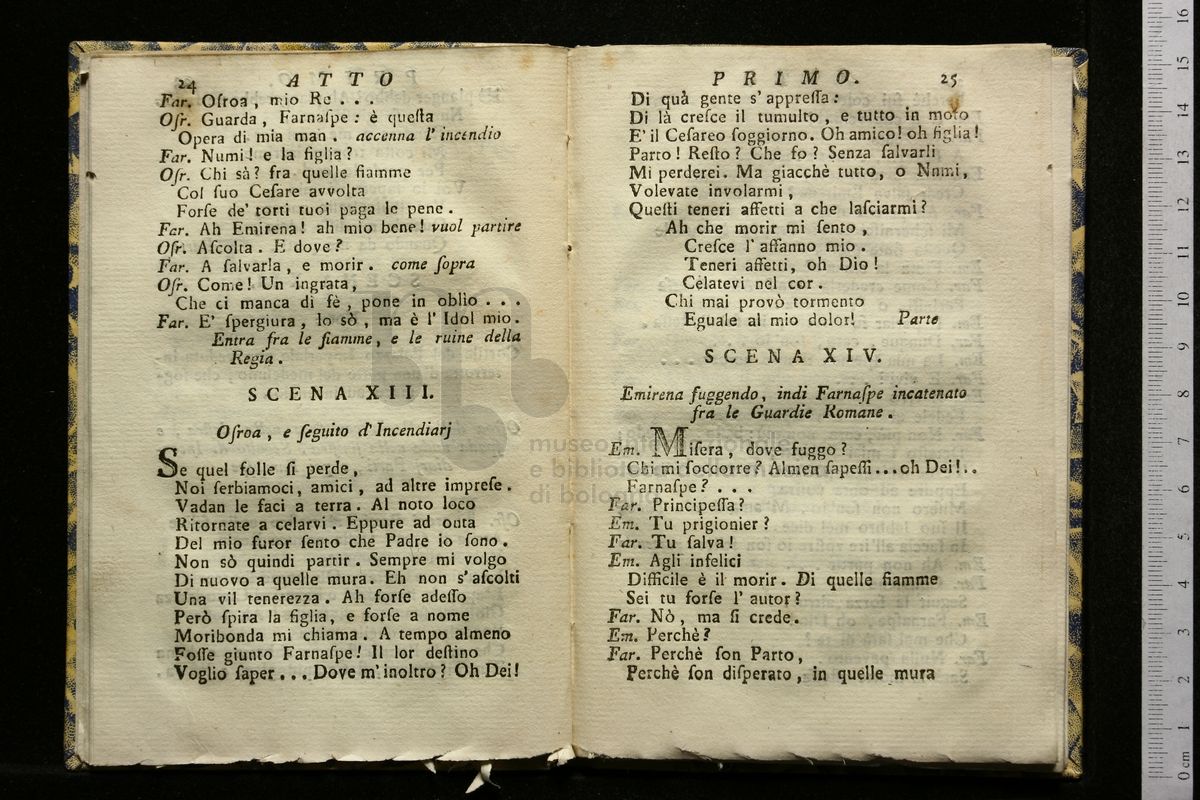 24 ATTO
Far. Oſroa, mio Re...
Oſr. Guarda, Farnaſpe: è queſta
Opera di mia man. accenna l'incendio
Far. Numi! e la figlia?
Oſr. Chi sà? fra quelle fiamme
Col ſuo Ceſare avvolta
Forſe de' torti tuoi paga le pene.
Far. Ah Emirena! ah mio bene! vuol partire
Oſr. Aſcolta. E dove?
Far. A ſalvarla, e morir. come ſopra
Oſr. Come! Un ingrata,
Che ci manca di fè, pone in oblìo...
Far. E' ſpergiura, lo sò, ma è l'Idol mio.
Entra fra le fiamme, e le ruine della
Regia.
SCENA XIII.
Oſroa, e ſeguito d'Incendiarj
Se quel folle ſi perde,
Noi ſerbiamoci, amici, ad altre impreſe.
Vadan le faci a terra. Al noto loco
Ritornate a celarvi. Eppure ad onta
Del mio furor ſento che Padre io ſono.
Non sò quindi partir. Sempre mi volgo
Di nuovo a quelle mura. Eh non s'aſcolti
Una vil tenerezza. Ah forſe adeſſo
Però ſpira la figlia, e forſe a nome
Moribonda mi chiama. A tempo almeno
Foſſe giunto Farnaſpe! Il lor deſtino
Voglio ſaper... Dove m'inoltro? Oh Dei!
PRIMO. 25
Di quà gente s'appreſſa:
Di là creſce il tumulto, e tutto in moto
E' il Ceſareo ſoggiorno. Oh amico! oh figlia!
Parto! Reſto? Che fo? Senza ſalvarli
Mi perderei. Ma giacchè tutto, o Numi,
Volevate involarmi,
Queſti teneri affetti a che laſciarmi?
Ah che morir mi ſento,
Creſce l'affanno mio.
Teneri affetti, oh Dio!
Celatevi nel cor.
Chi mai provò tormento
Eguale al mio dolor! Parte
SCENA XIV.
Emirena fuggendo, indi Farnaſpe incatenato
fra le Guardie Romane.
Em. Miſera, dove fuggo?
Chi mi ſoccorre? Almen ſapeſſi...oh Dei!..
Farnaſpe?...
Far. Principeſſa?
Em. Tu prigionier?
Far. Tu ſalva!
Em. Agli infelici
Difficile è il morir. Di quelle fiamme
Sei tu forſe l'autor?
Far. Nò, ma ſi crede.
Em. Perchè?
Far. Perchè ſon Parto,
Perchè ſon diſperato, in quelle mura
museo internazionale
e biblioteca
di bologna
0 cm 1 2 3 4 5 6 7 8 9 10 11 12 13 14 15 16